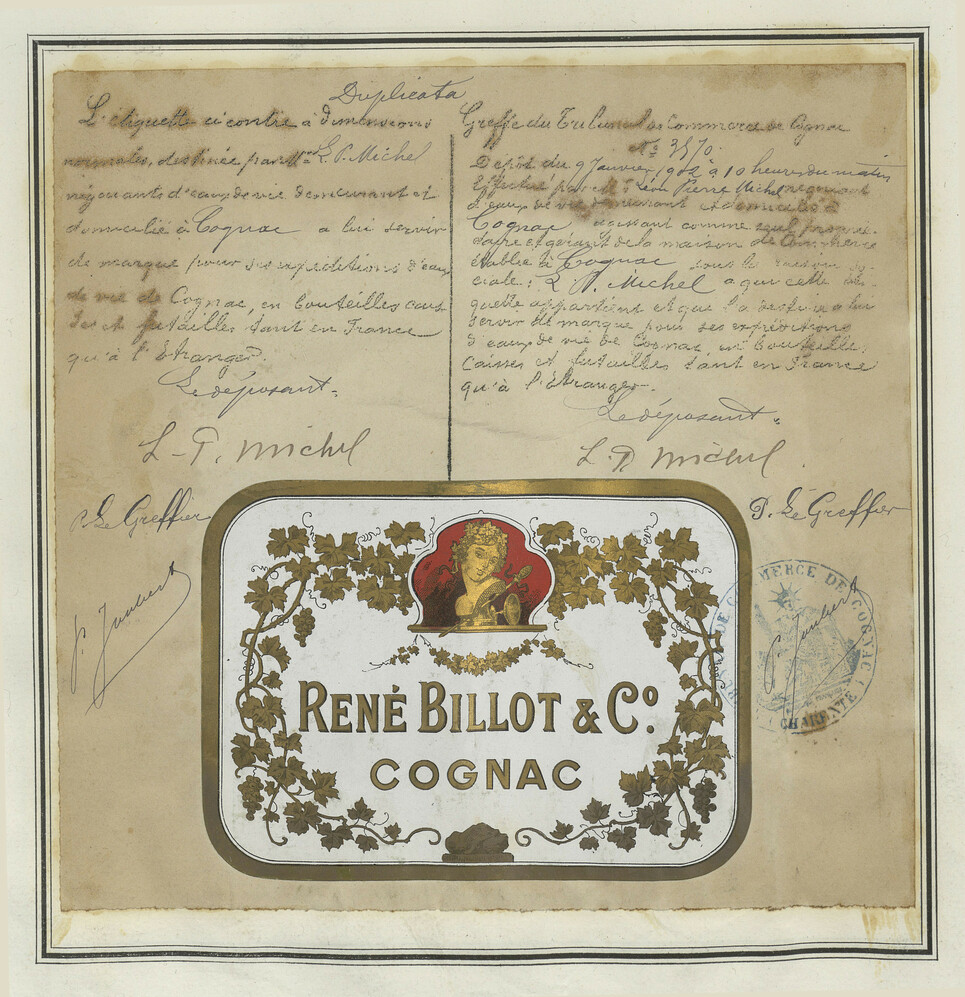 Duplicata
L'étiquette ci contre à dimensions
normales, destinée par Mr L. P. Michel
négociants d'eaux de vie demeurant et
domicilié à Cognac a lui servir
de marque pour ses expéditions d'eaux
de vie de Cognac, en bouteilles cais
ses et futailles, tant en France
qu'à l'Etranger.
Le déposant.
L. P. Michel
P. Le Greffier
P. Joubert
Greffe du Tribunal de Commerce de Cognac
No 3570.
Dépôt du 9 Janvier 1902 à 10 heures du matin
Effectué par Léon Pierre Michel négociant
d'eaux de vie demeurant et domicilié à
Cognac agissant comme seul proprié
taire et gérant de la maison de Commerce
établie à Cognac sous la raison so
ciale: L. P. Michel a qui cette éti
quette appartient et que l'a destinée a lui
servir de marque pour ses expéditions
d'eaux de vie de Cognac, en bouteille,
caisses et futailles tant en France
qu'à l'étranger.
Le déposant.
L. P. Michel
P. Le Greffier
P. Joubert
COMMERCE DE COGNAC
CHARENTE
RENÉ BILLOT & Co.
COGNAC